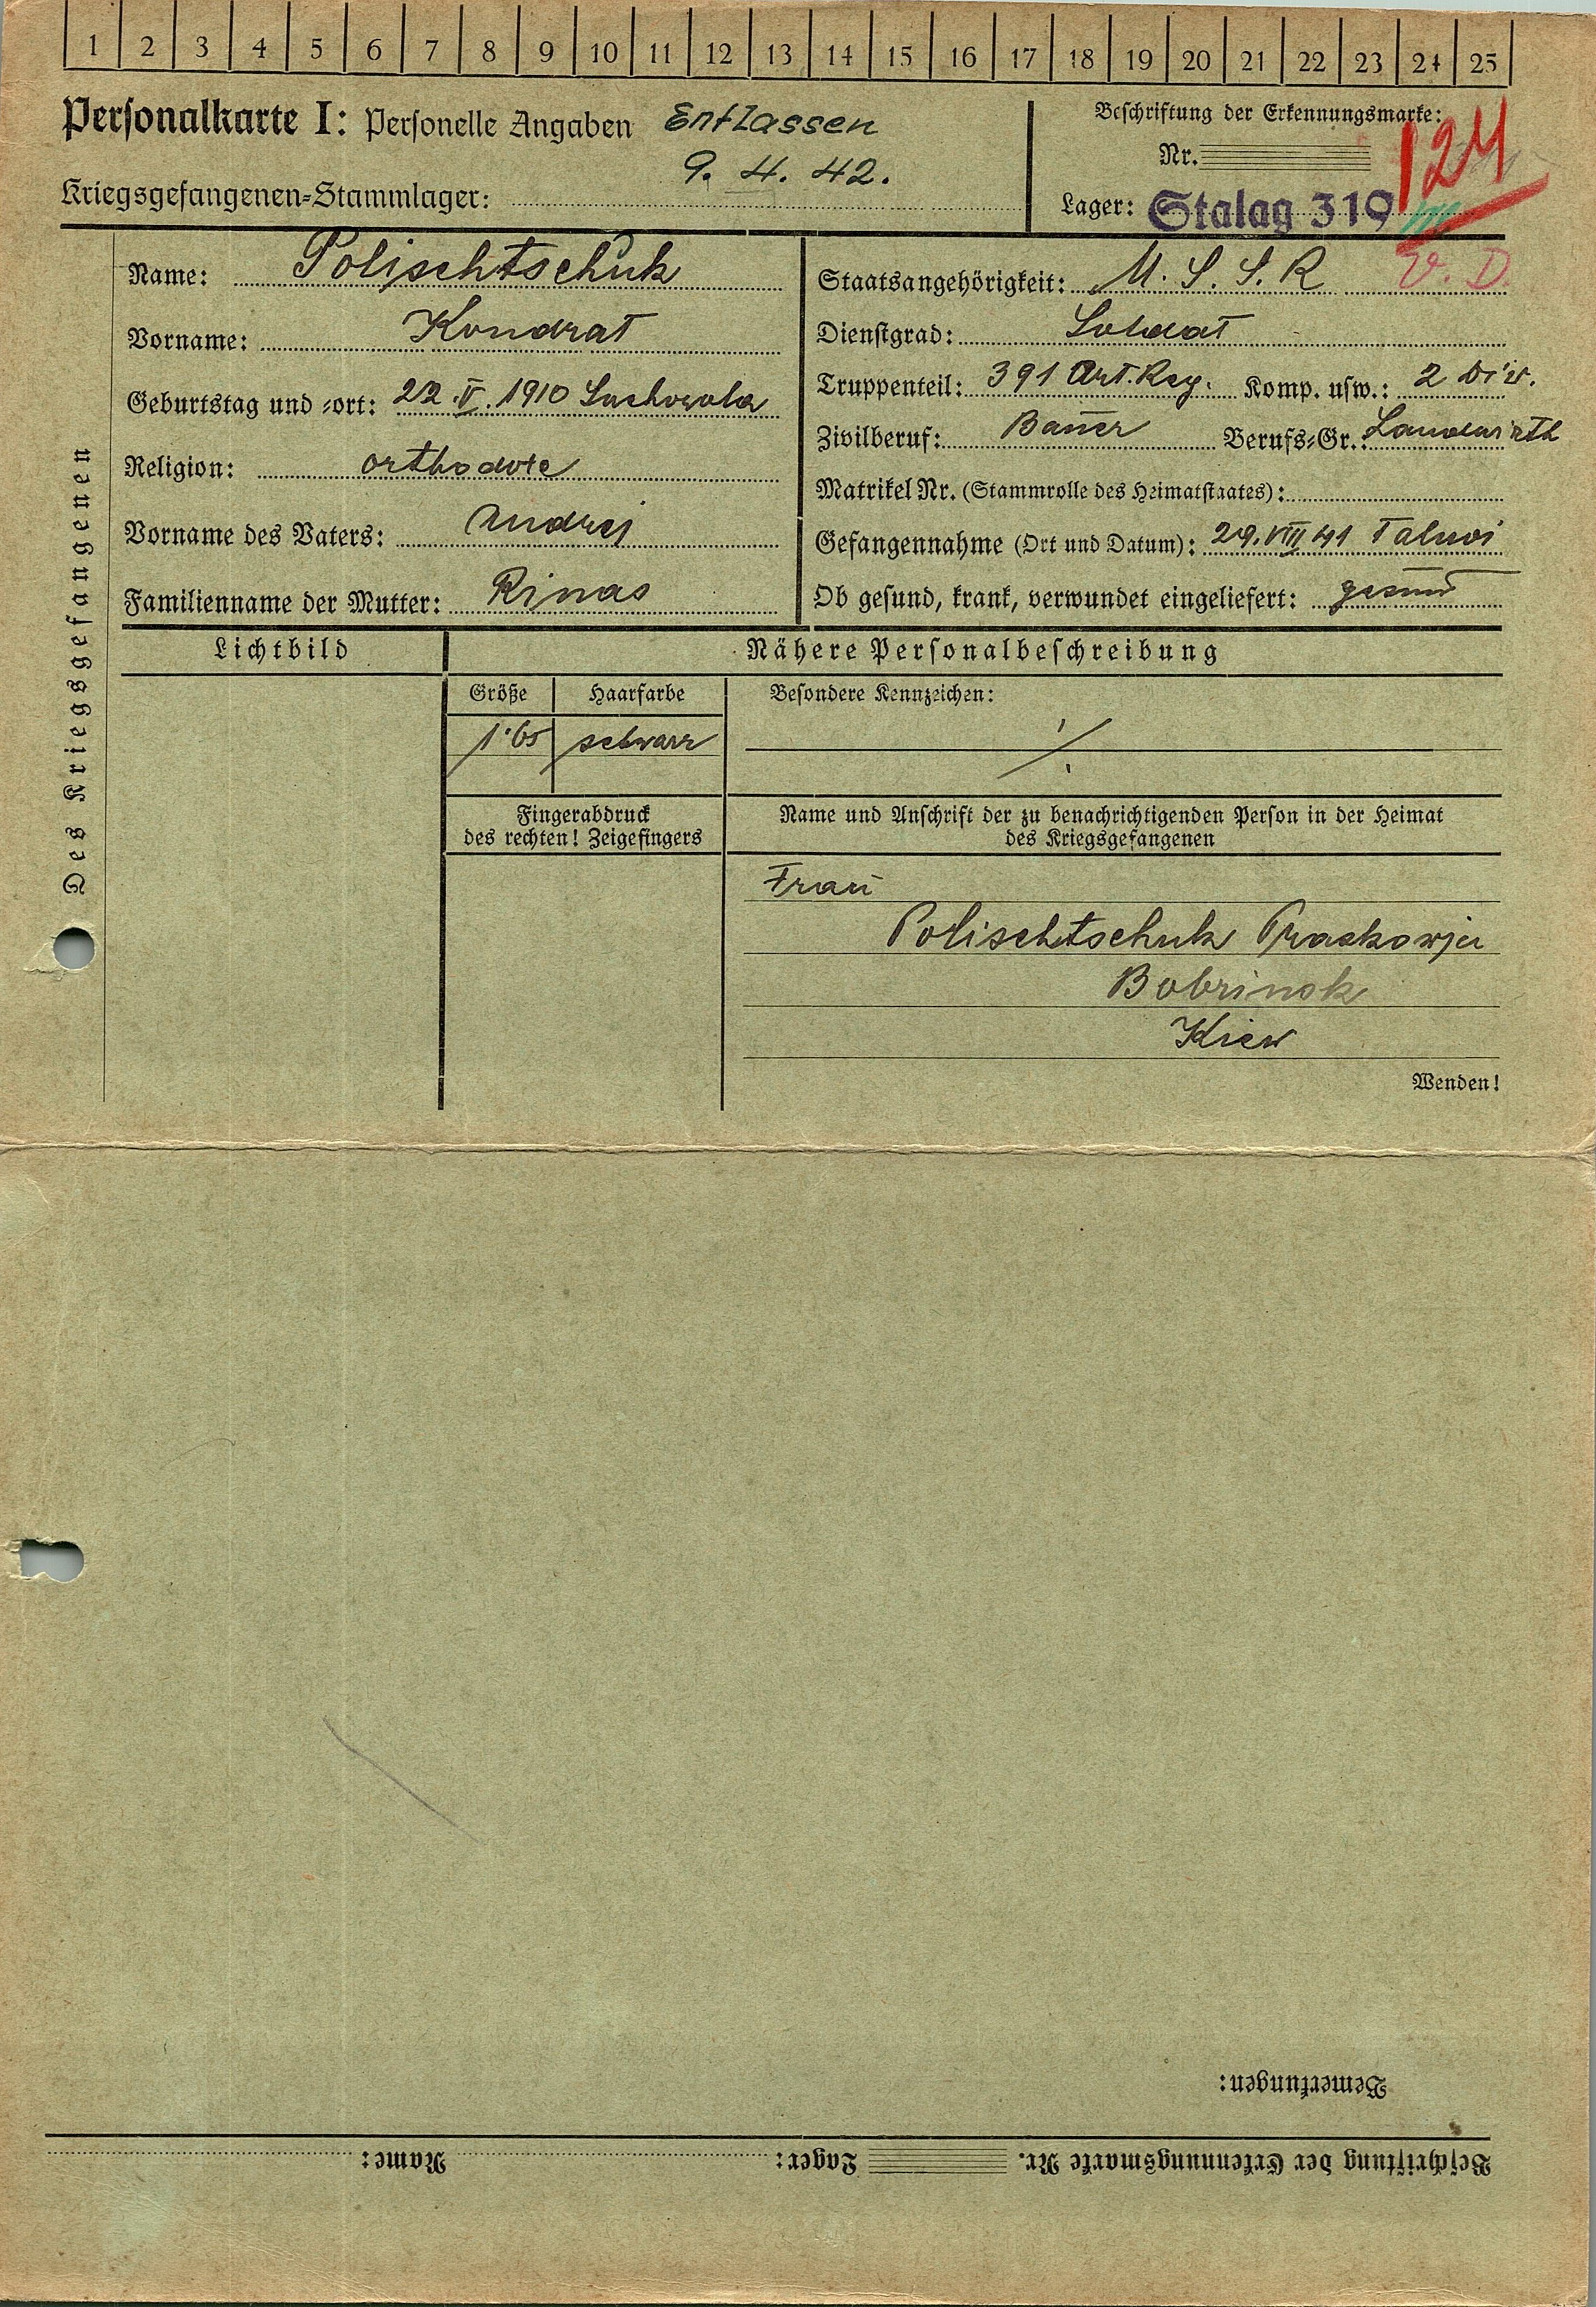 1 2 3 4 5 6 7 8 9 10 11 12 13 14 15 16 17 18 19 20 21 22 23 24 25
Personalkarte I: Personelle Angaben Entlassen
9. 4. 42.
Kriegsgefangenen-Stammlager:
Beschriftung der Erkennungsmarke:
Nr. 124
Lager: Stalag 319
V. D.
Des Kriegsgefangenen
Name: Polischtschuk
Vorname: Kondrat
Geburtstag und -ort: 22. V. 1910 Suchowola
Religion: orthodoxe
Vorname des Vaters: Andrej
Familienname der Mutter: Rinas
Staatsangehörigkeit: U. S. S. R
Dienstgrad: Soldat
Truppenteil: 391 Art. Reg. Komp. usw.: 2 Div.
Zivilberuf: Bauer Berufs-Gr.: Landwirth
Matrikel Nr. (Stammrolle des Heimatstaates):
Gefangennahme (Ort und Datum): 29. VIII 41 Talnoi
Ob gesund, krank, verwundet eingeliefert: gesund
Lichtbild
Nähere Personalbeschreibung
Größe Haarfarbe Besondere Kennzeichen:
1·65 schwarz ./.
Fingerabdruck
des rechten! Zeigefingers
Name und Anschrift der zu benachrichtigenden Person in der Heimat
des Kriegsgefangenen
Frau
Polischtschuk Praskowja
Bobrinsk
Kiew
Wenden!
Bemerkungen:
Beschriftung der Erkennungsmarke Nr. Lager: Name: